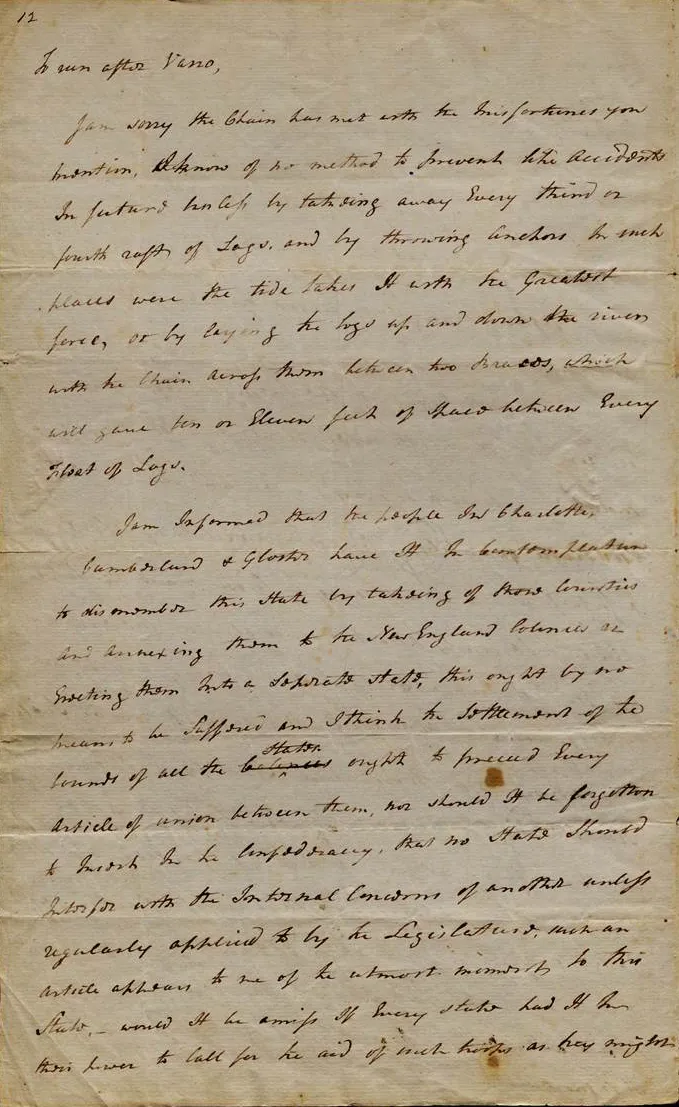 12
To run after Vano,
I am sorry the Chain has met with the Misfortunes you
mention, I know of no method to prevent like Accidents
In future unless by taking away Every third or
fourth raft of Logs. and by throwing Anchors In such
places were the tide takes It with the Greatest
force, or by laying the logs up and down the river
with the Chain Across them between two Braces, which
will gave ten or Eleven feet of Space between Every
Float of Logs.
I am Informed that the people In Charlotte,
Cumberland & Gloster have It In Contemplation
to dismember this State by takeing of those Counties
And annexing them to the New England Colonies or
Erecting them Into a Seperate State, this ought by no
means to be Suffered and I think the Settlement of the
States
bounds of all the Colonies ought to preceed Every
Article of union between them, nor should It be forgotten
to Insert In he Confederacy, that no State Should
Interfer with the Internal Concerns of another unless
regularly applied to by he Legislature, such an
Article appears to me of the utmost moment to this
State, – would It be amiss If Every state had It In
their power to Call for he aid of such troops as hey might